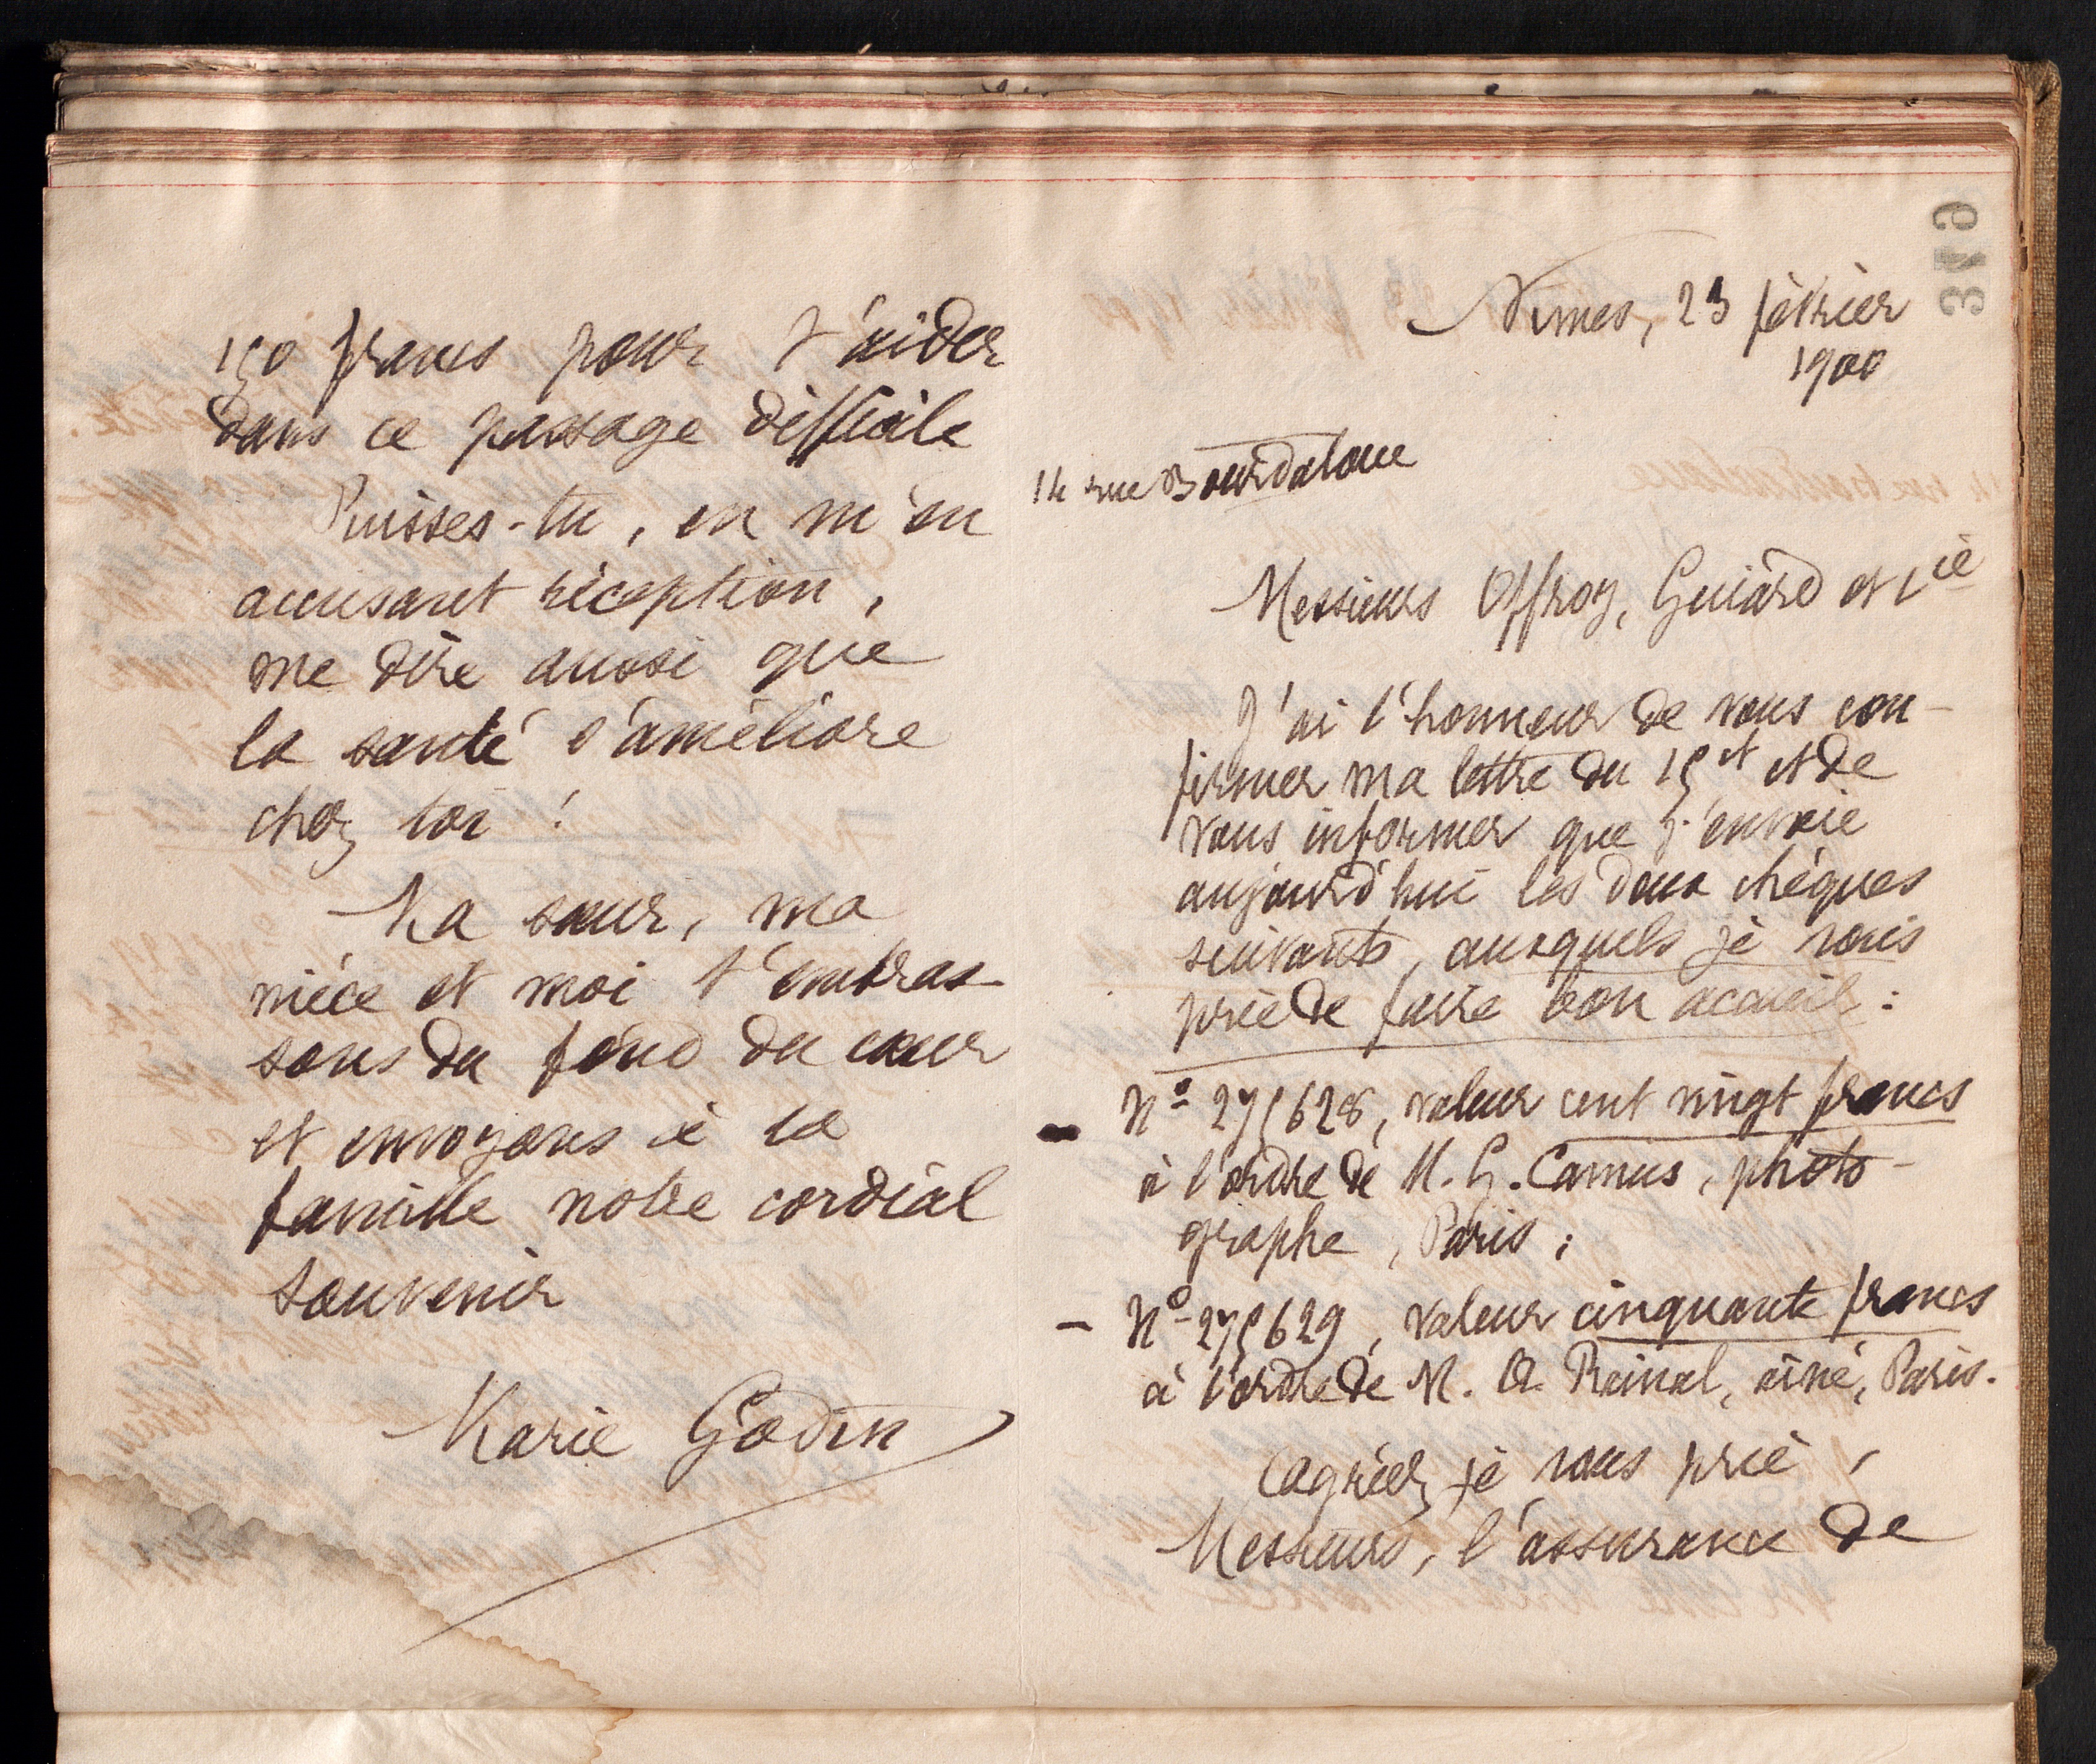 150 francs pour t'aider
dans ce passage difficile
Puisses-tu, en m'en
accusant réception,
me dire aussi que
la santé s'améliore
chez toi !
Ma sœur, ma
nièce et moi t'embras-
sons du fond du cœur
et envoyons à ta
famille notre cordial
souvenir
Marie Godin
319
Nimes, 23 février
1900
14 rue Bourdaloue
Messieurs Offroy, Guiard et Cie
J'ai l'honneur de vous con-
firmer ma lettre du 15 ct et de
vous informer que j'envoie
aujourd'hui les deux chèques
suivants, auxquels je vous
prie de faire bon accueil :
- N° 275628, valeur cent vingt francs
à l'ordre de M. G. Camus, photo-
graphe, Paris ;
- N° 275629, valeur cinquante francs
à l'ordre de M. A. Reinal, aîné, Paris.
Agréez, je vous prie,
Messieurs, l'assurance de